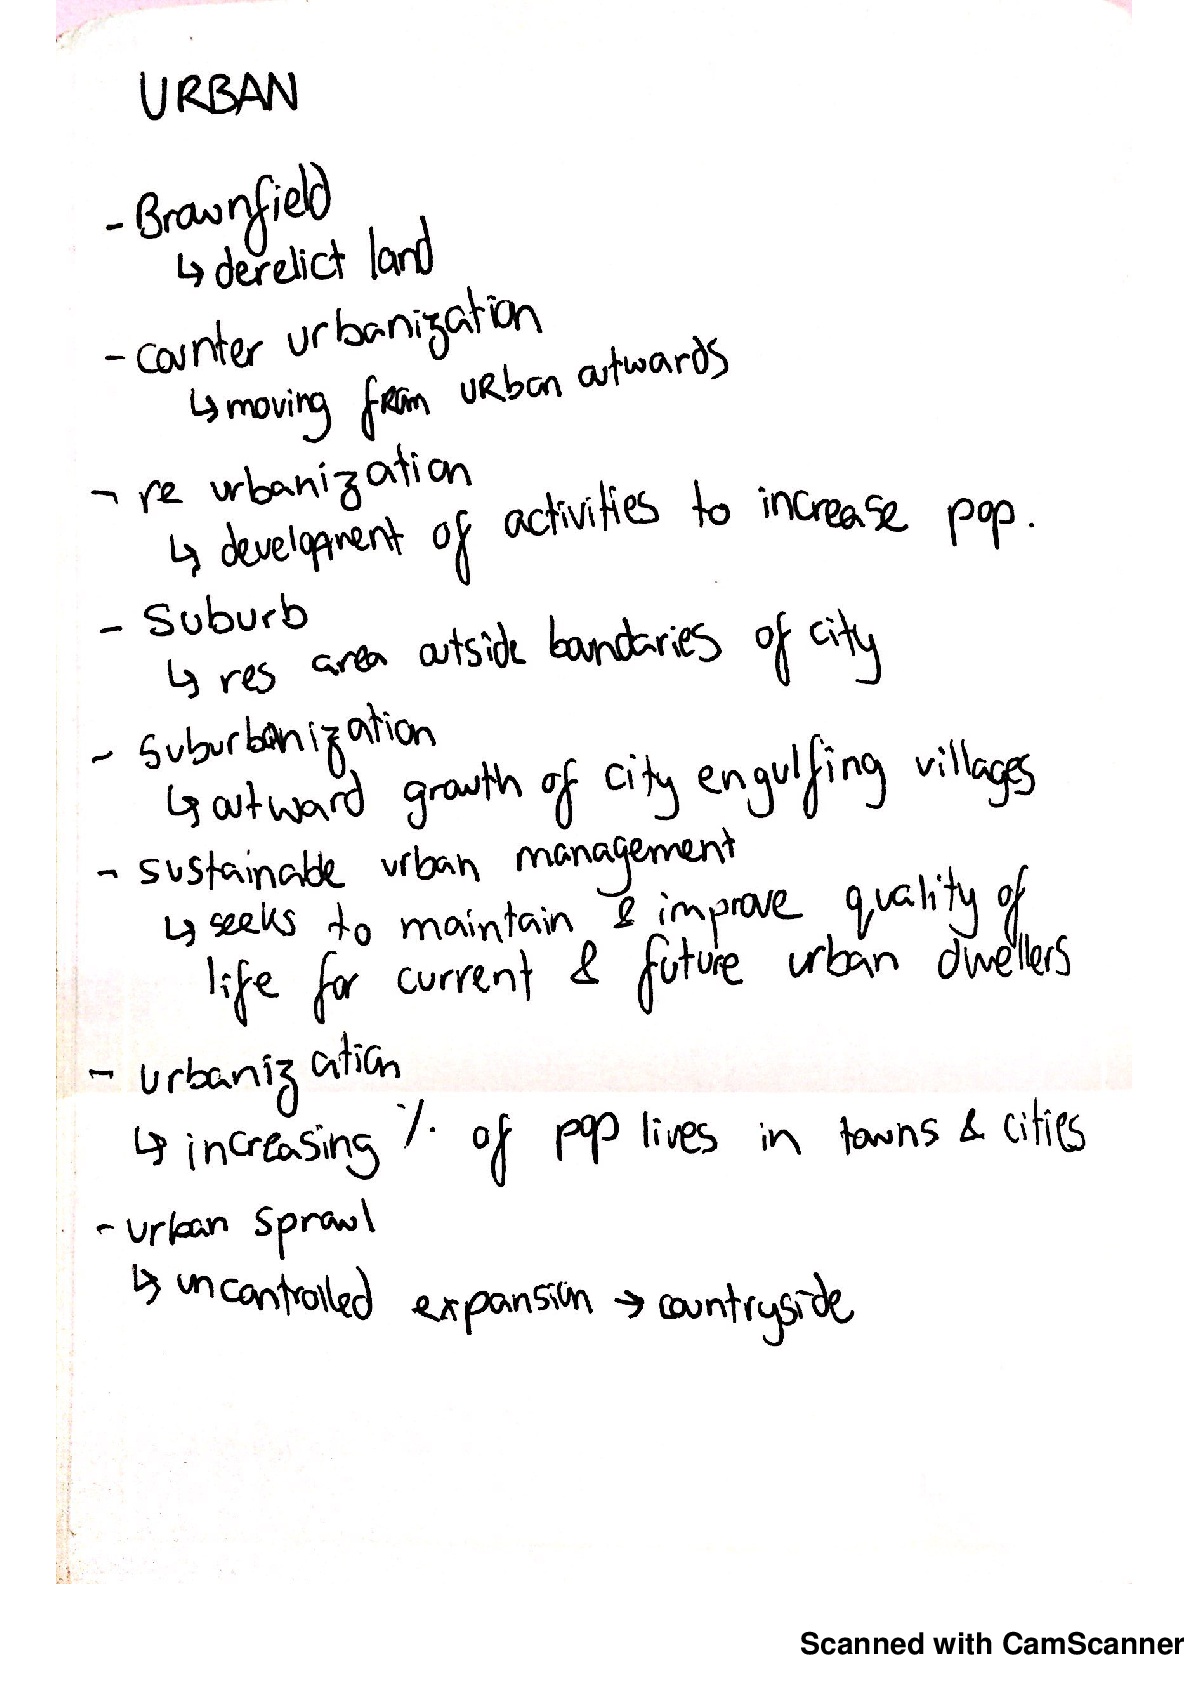 URBAN
- Brownfield
↳ derelict land
- counter urbanization
↳ moving from urban outwards
- re urbanization
↳ development of activities to increase pop.
- Suburb
↳ res area outside boundaries of city
- suburbanization
↳ outward growth of city engulfing villages
- sustainable urban management
↳ seeks to maintain & improve quality of
life for current & future urban dwellers
- urbanization
↳ increasing % of pop lives in towns & cities
- urban sprawl
↳ uncontrolled expansion → countryside
Scanned with CamScanner